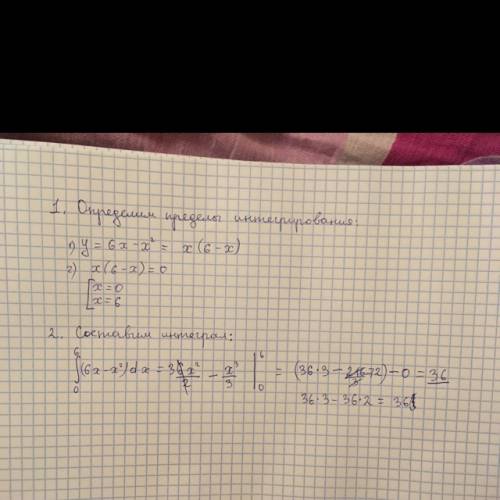 1. Определим пределы интегрирования:
1) y = 6x - x² = x(6 - x)
2) x(6 - x) = 0
[x = 0
x = 6
2. Составим интеграл:
∫₀⁶ (6x - x²)dx = 3 6x²/2 - x³/3 |₀⁶ = (36·3 - 216/3 72) - 0 = 36
36·3 - 36·2 = 36